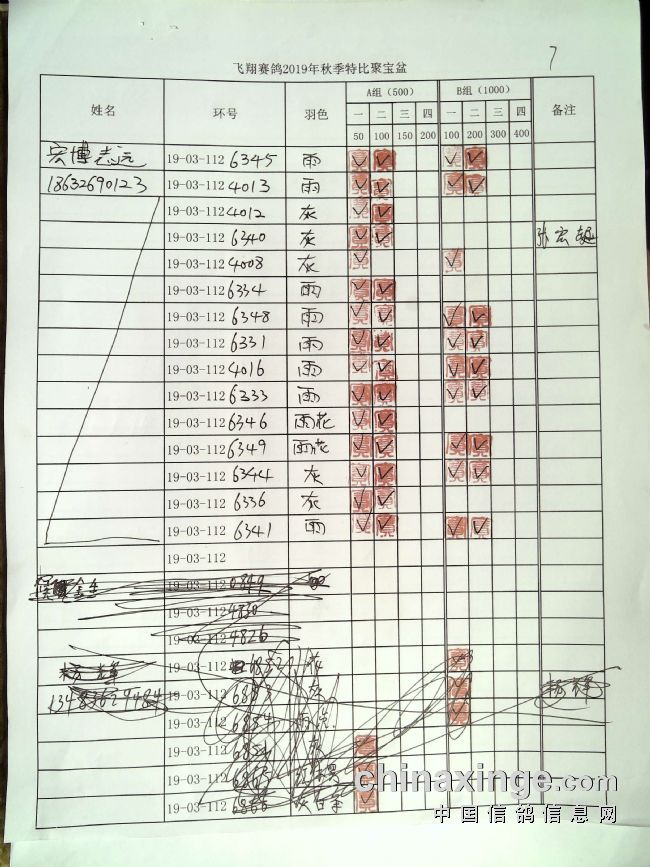 7
飞翔赛鸽2019年秋季特比聚宝盆
姓名 环号 羽色 A组（500） B组（1000） 备注
一 二 三 四 一 二 三 四
50 100 150 200 100 200 300 400
宏博志远 19-03-112 6345 雨 ✓ ✓ ✓ ✓
18632690123 19-03-112 4013 雨 ✓ ✓ ✓ ✓
19-03-112 4012 灰 ✓ ✓
19-03-112 6340 灰 ✓ ✓ 张宏
19-03-112 4008 灰 ✓ ✓
19-03-112 6334 雨 ✓ ✓
19-03-112 6348 雨 ✓ ✓ ✓ ✓
19-03-112 6331 雨 ✓ ✓ ✓ ✓
19-03-112 4016 雨 ✓ ✓ ✓ ✓
19-03-112 6333 雨 ✓ ✓ ✓ ✓
19-03-112 6346 雨花 ✓ ✓
19-03-112 6349 雨花 ✓ ✓ ✓ ✓
19-03-112 6344 灰 ✓ ✓ ✓ ✓
19-03-112 6336 灰 ✓ ✓
19-03-112 6341 雨 ✓ ✓ ✓ ✓
19-03-112
19-03-112 0849
19-03-112 4830
19-03-112 4826
19-03-112 灰 ✓
19-03-112 6883 灰 ✓
19-03-112 6884 ✓
19-03-112 灰 ✓
19-03-112 ✓
19-03-112 6866 ✓
chinaxinge.com
中国信鸽信息网